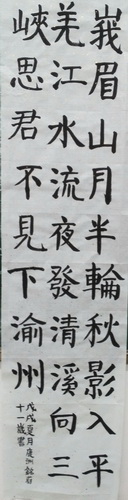 峩眉山月半輪秋影入平
羌江水流夜發清溪向三
峽思君不見下渝州
戊戌夏月
十一歲書